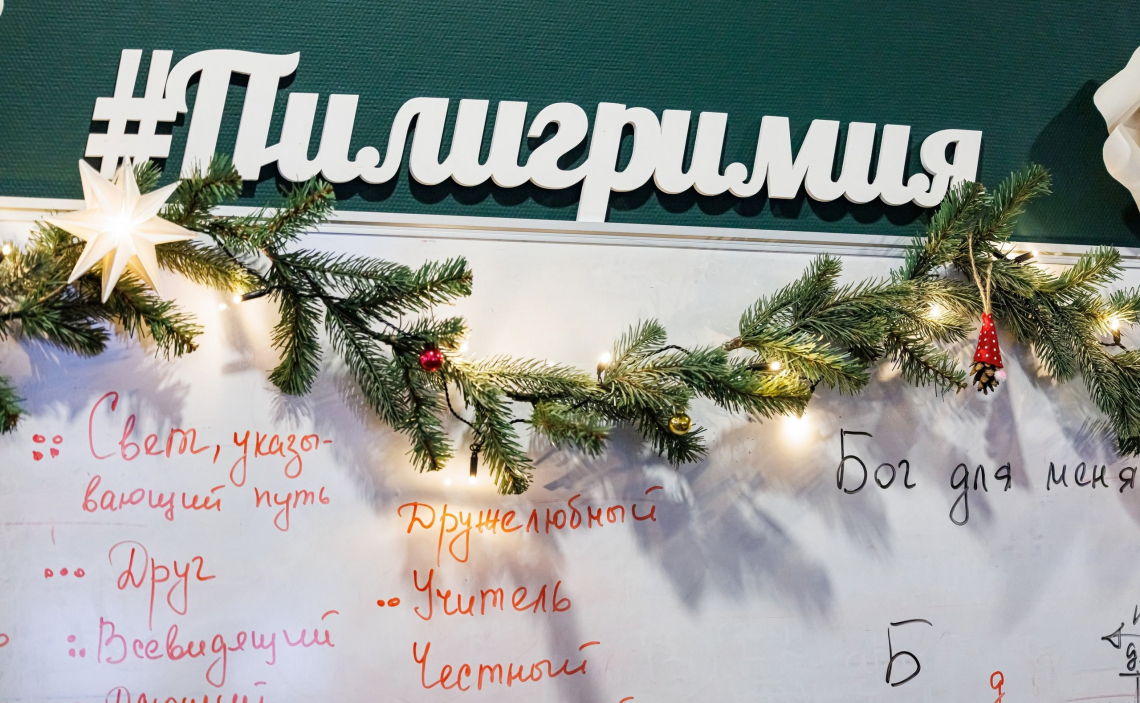 #Пилигримия
Свет, указы-
вающий путь
Друг
Всевидящий
Дружелюбный
Учитель
Честный
Бог для меня
Б
д